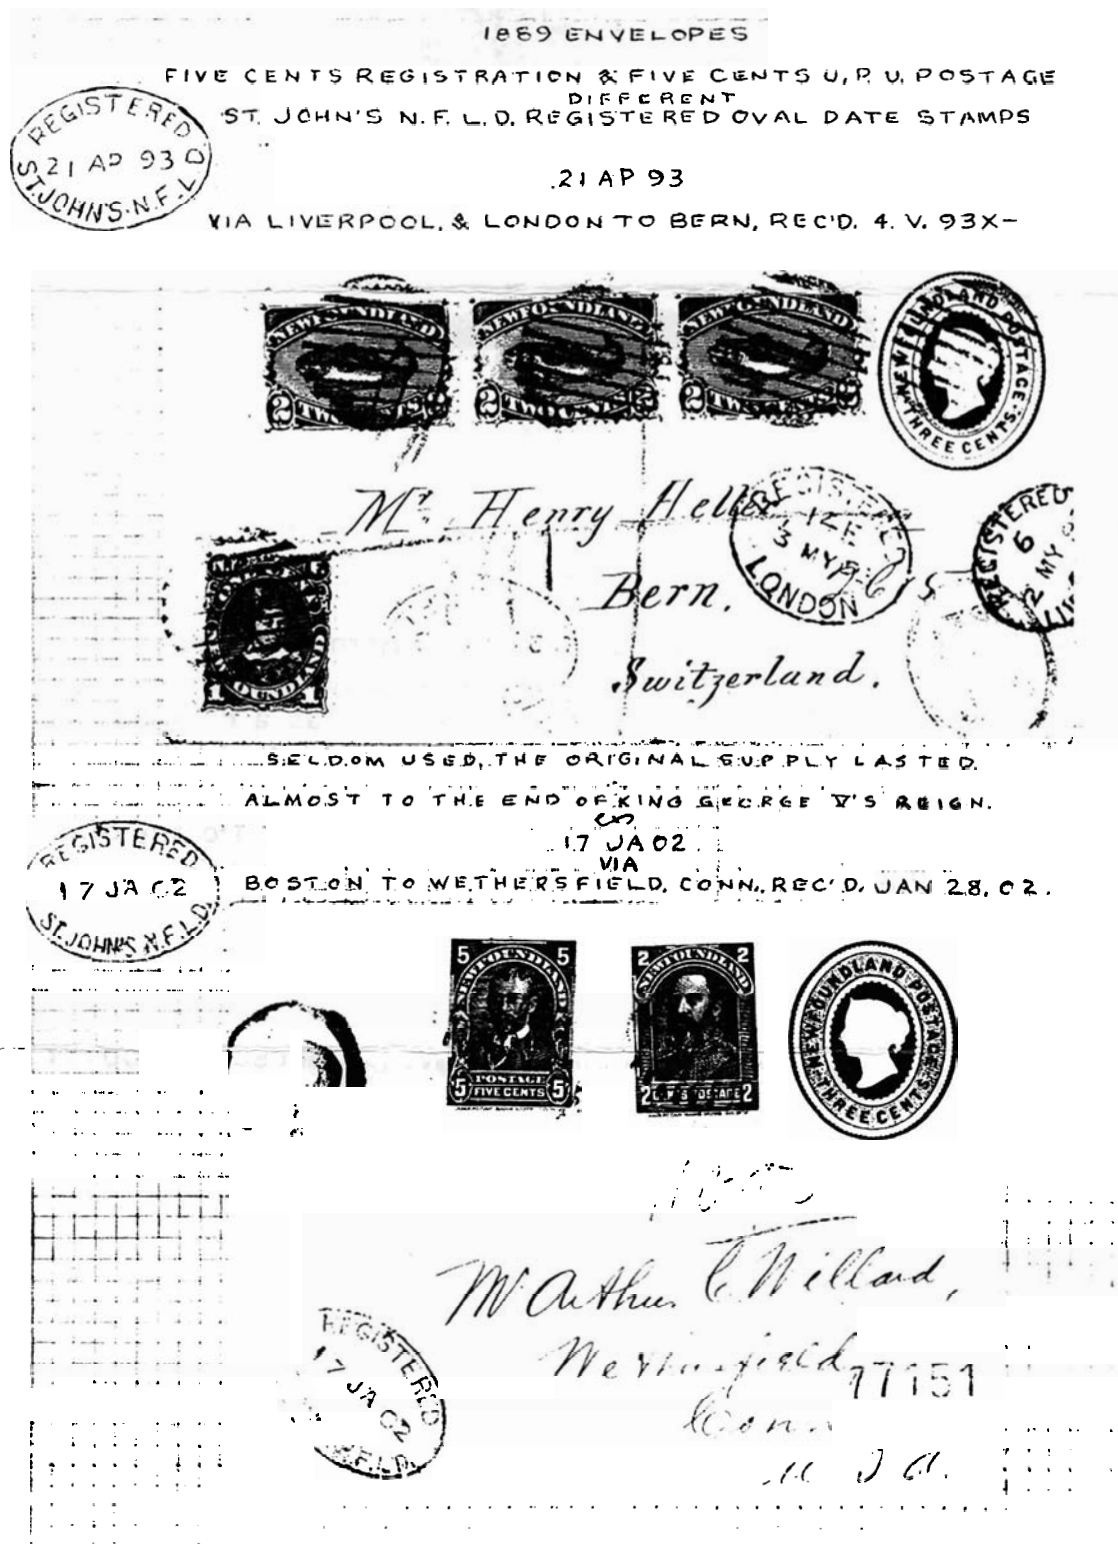 1889 ENVELOPES
FIVE CENTS REGISTRATION & FIVE CENTS U.P.U. POSTAGE
DIFFERENT
ST. JOHN'S N.F.L.D. REGISTERED OVAL DATE STAMPS
REGISTERED
21 AP 93
ST. JOHN'S. N.F.L.D
21 AP 93
VIA LIVERPOOL, & LONDON TO BERN, REC'D. 4. V. 93X-
NEWFOUNDLAND
2 TWO CENTS 2
NEWFOUNDLAND
2 TWO CENTS 2
NEWFOUNDLAND
2 TWO CENTS 2
NEWFOUNDLAND POSTAGE
THREE CENTS
Mr. Henry Heller
REGISTERED
3 MY
LONDON
REGISTERED
6
2 MY
Bern.
Switzerland.
1 1
SELDOM USED, THE ORIGINAL SUPPLY LASTED
ALMOST TO THE END OF KING GEORGE V'S REIGN.
17 JA 02
VIA
BOSTON TO WETHERSFIELD, CONN., REC'D. JAN 28, 02.
REGISTERED
17 JA 02
ST. JOHN'S N.F.L.D.
5 5
NEWFOUNDLAND
POSTAGE
5 FIVE CENTS 5
2 2
NEWFOUNDLAND
2 CENTS POSTAGE 2
NEWFOUNDLAND POSTAGE
THREE CENTS
Mr Arthur C Willard,
Wethersfield
17151
Conn
U S A.
REGISTERED
17 JA 02
N.F.L.D.